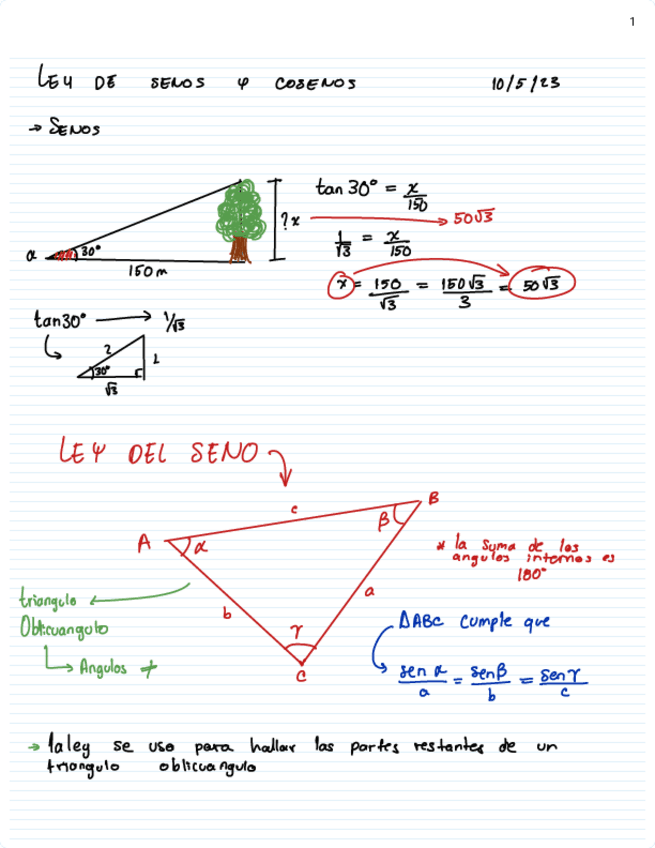 1
LEY DE SENOS Y COSENOS 10/5/23
→ SENOS
tan 30° = x/150
?x → 50√3
α 30°
1/√3 = x/150
150 m
x = 150/√3 = 150√3/3 = 50√3
tan30° → 1/√3
2 1
30°
√3
LEY DEL SENO
c B
A α β
* la suma de los
angulos internos es
180°
a
triangulo
b
Oblicuangulo
γ
ΔABC cumple que
→ Angulos ≠
C
sen α/a = senβ/b = sen γ/c
→ la ley se uso para hallar las partes restantes de un
triangulo oblicuangulo